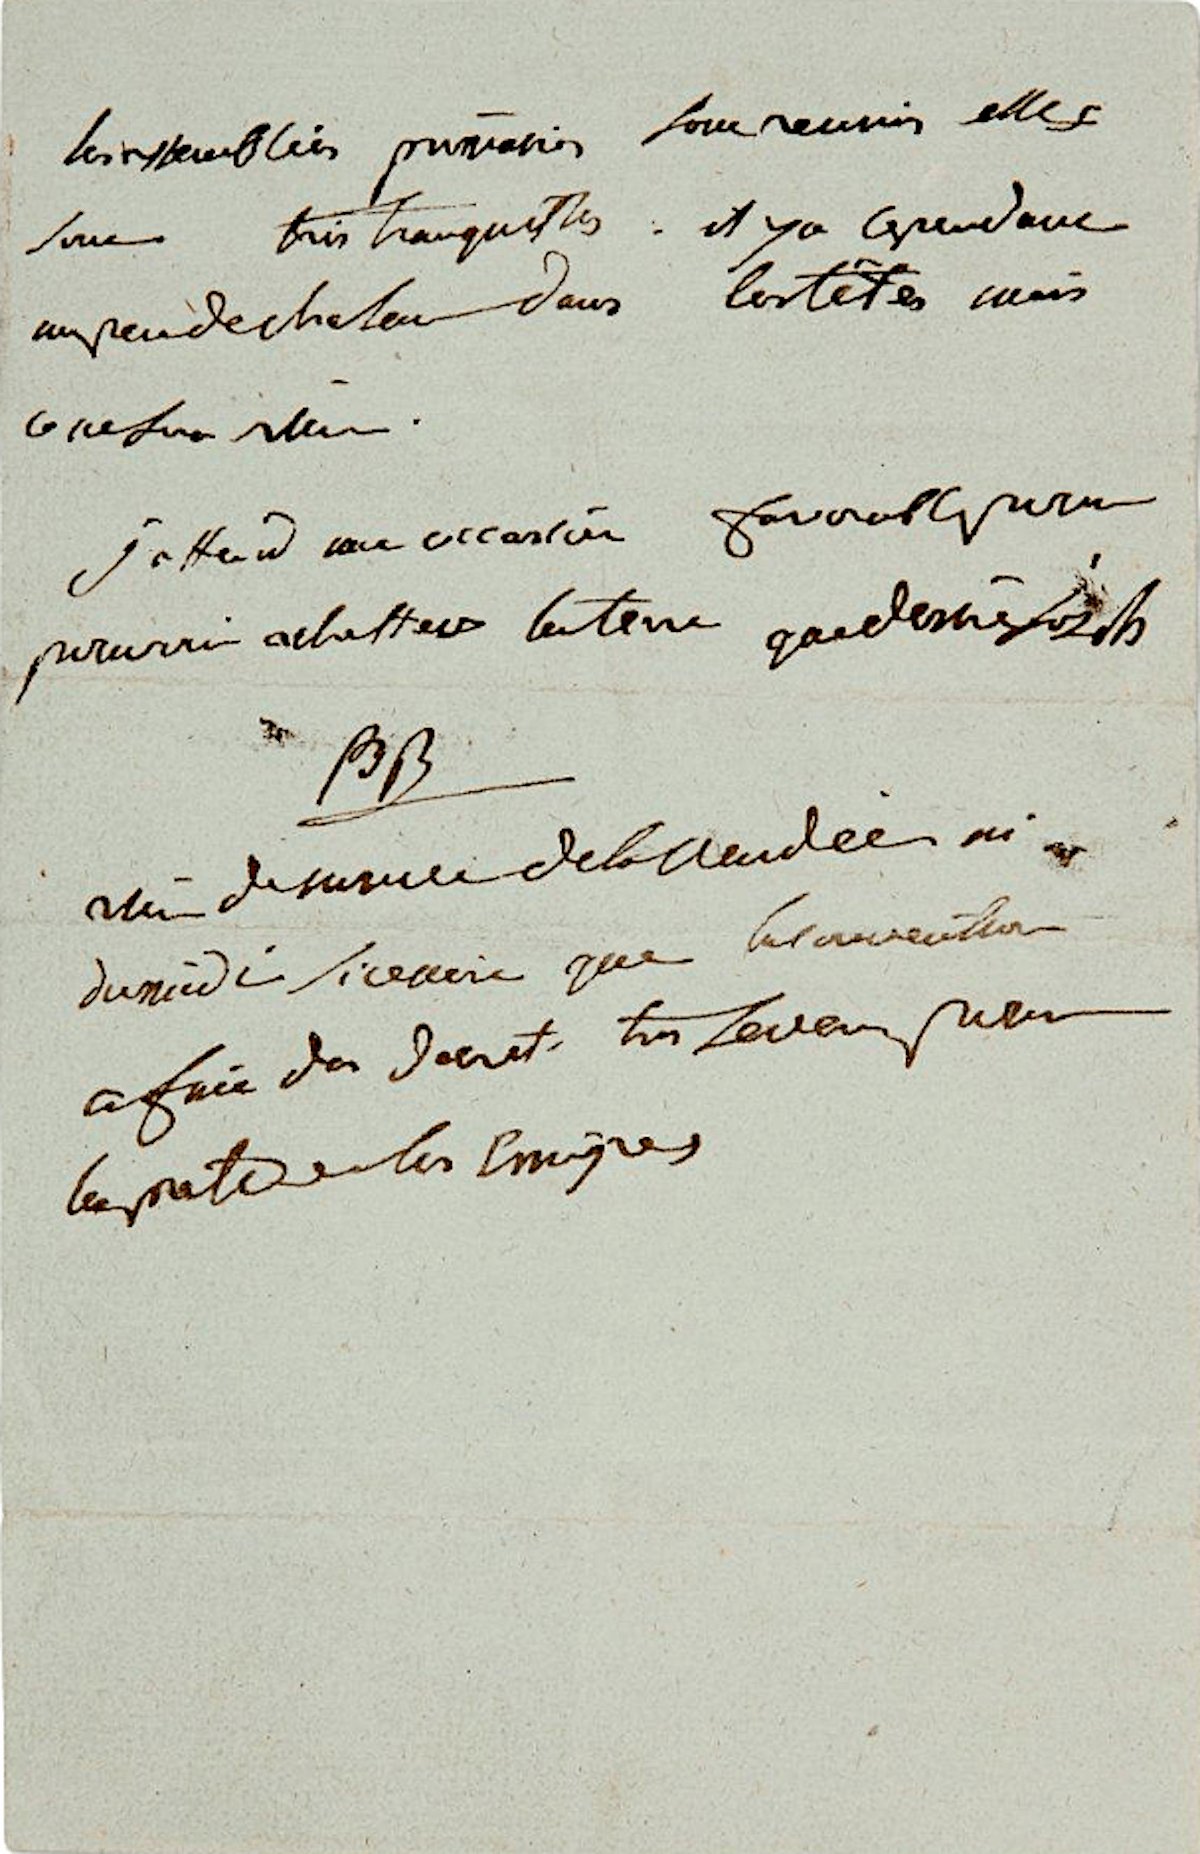 les assemblées primaires sont reunis elles
sont tres tranquilles . il y a cependant
un peu de chaleur dans les têtes mais
ce ne sera rien .
j'attend une occasion favorable pour
pouvoir achetter la terre que desire
BB
rien de nouveau de la Vendée ni
du midi si ce n'est que la convention
a fait des decret tres severe pour
les pretre et les Emigres